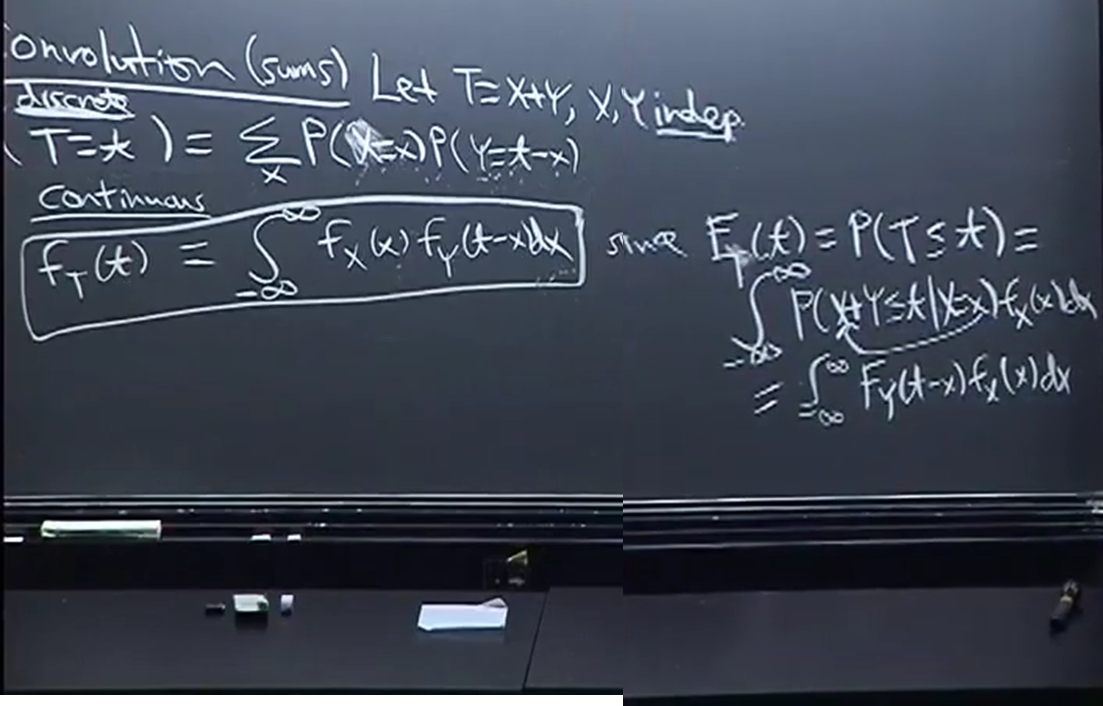 onvolution (sums) Let T=X+Y, X,Y indep.
discrete
(T=t) = ∑_x P(X=x)P(Y=t-x)
continuous
f_T(t) = ∫_{-∞}^{∞} f_X(x) f_Y(t-x)dx since F_T(t) = P(T≤t) =
∫_{-∞}^{∞} P(X+Y≤t|X=x)f_X(x)dx
= ∫_{-∞}^{∞} F_Y(t-x)f_X(x)dx